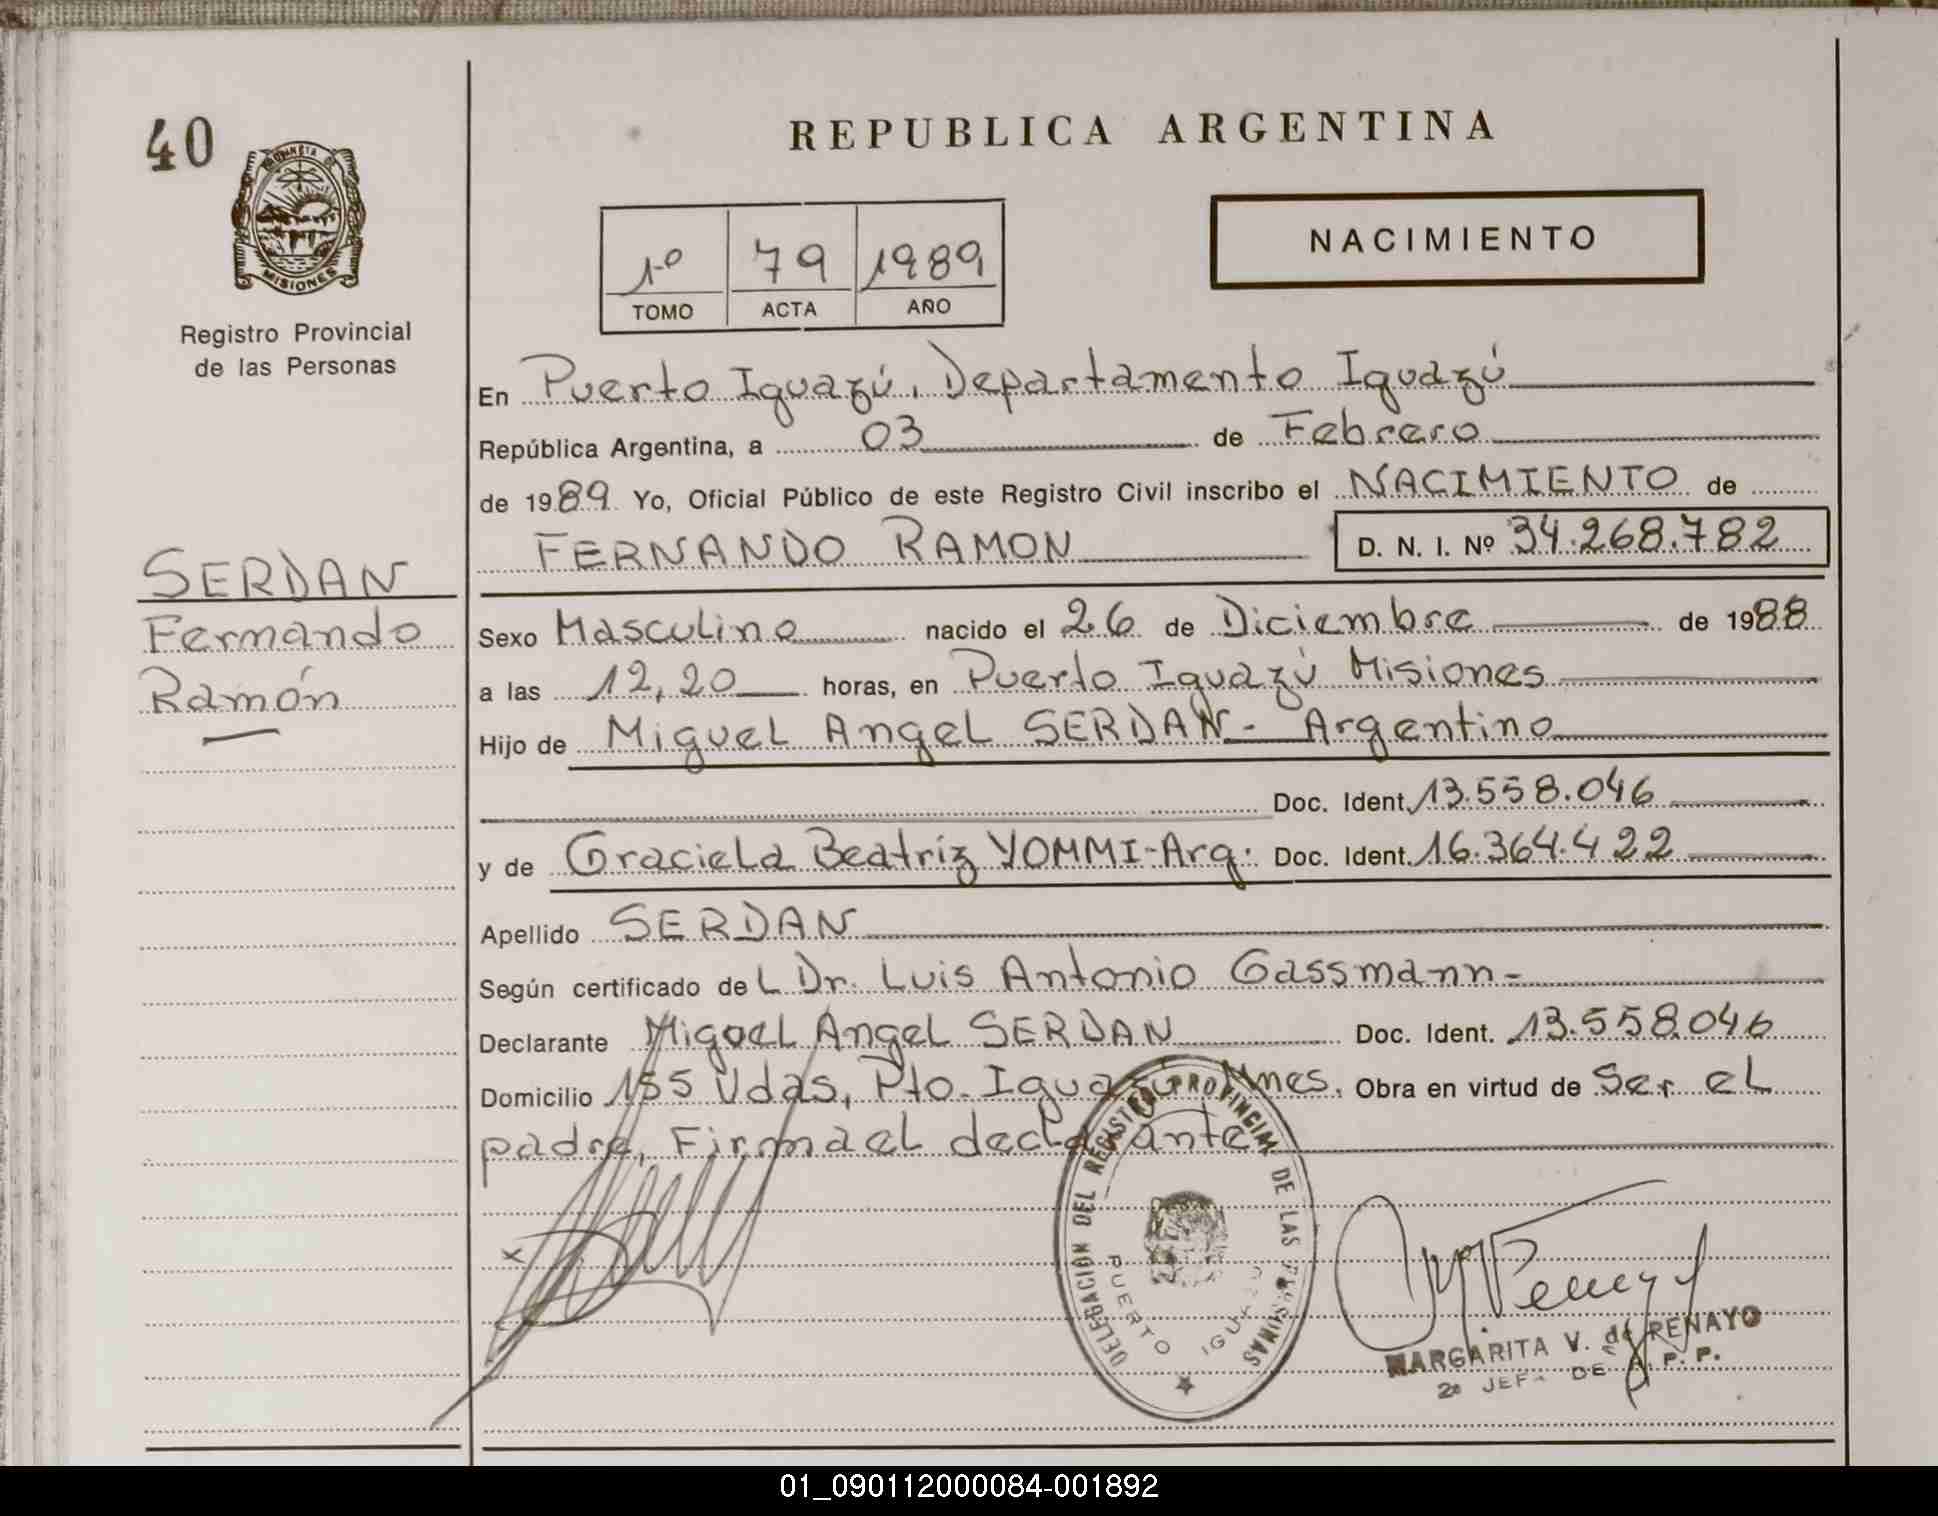 40
PROVINCIA DE
MISIONES
Registro Provincial
de las Personas
SERDAN
Fernando
Ramón
REPUBLICA ARGENTINA
1º 79 1989
TOMO ACTA AÑO
NACIMIENTO
En Puerto Iguazú, Departamento Iguazú
República Argentina, a 03 de Febrero
de 1989 Yo, Oficial Público de este Registro Civil inscribo el NACIMIENTO de
FERNANDO RAMON D. N. I. Nº 34.268.782
Sexo Masculino nacido el 26 de Diciembre de 1988
a las 12,20 horas, en Puerto Iguazú Misiones
Hijo de Miguel Angel SERDAN - Argentino
Doc. Ident. 13.558.046
y de Graciela Beatriz YOMMI-Arg. Doc. Ident. 16.364.422
Apellido SERDAN
Según certificado del Dr. Luis Antonio Gassmann-
Declarante Miguel Angel SERDAN Doc. Ident. 13.558.046
Domicilio 155 Vdas, Pto. Iguazú Mnes. Obra en virtud de Ser el
padre, Firma el declarante
DELEGACION DEL REGISTRO PROVINCIAL DE LAS PERSONAS
PUERTO IGUAZU
MARGARITA V. de RENAYO
2a JEFA DE R. P. P.
01_090112000084-001892